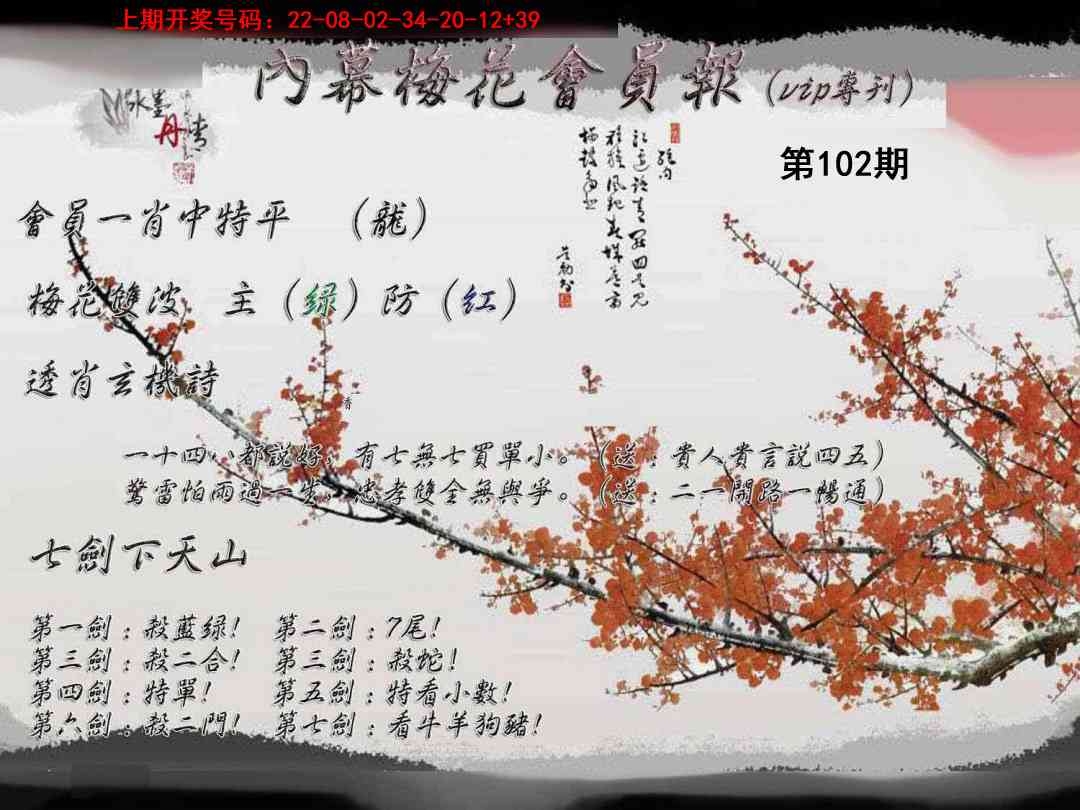 上期开奖号码：22-08-02-34-20-12+39
內幕梅花會員報（vip專刊）
水墨
丹青
第102期
會員一肖中特平 （龍）
梅花雙波 主（绿）防（红）
透肖玄機詩
一十四八都説好，有七無七買單小。（送：貴人貴言説四五）
驚雷怕雨過一生，忠孝雙全無與爭。（送：二一開路一暢通）
七劍下天山
第一劍：殺藍绿！ 第二劍：7尾！
第三劍：殺二合！ 第三劍：殺蛇！
第四劍：特單！ 第五劍：特看小數！
第六劍：殺二門！ 第七劍：看牛羊狗豬！